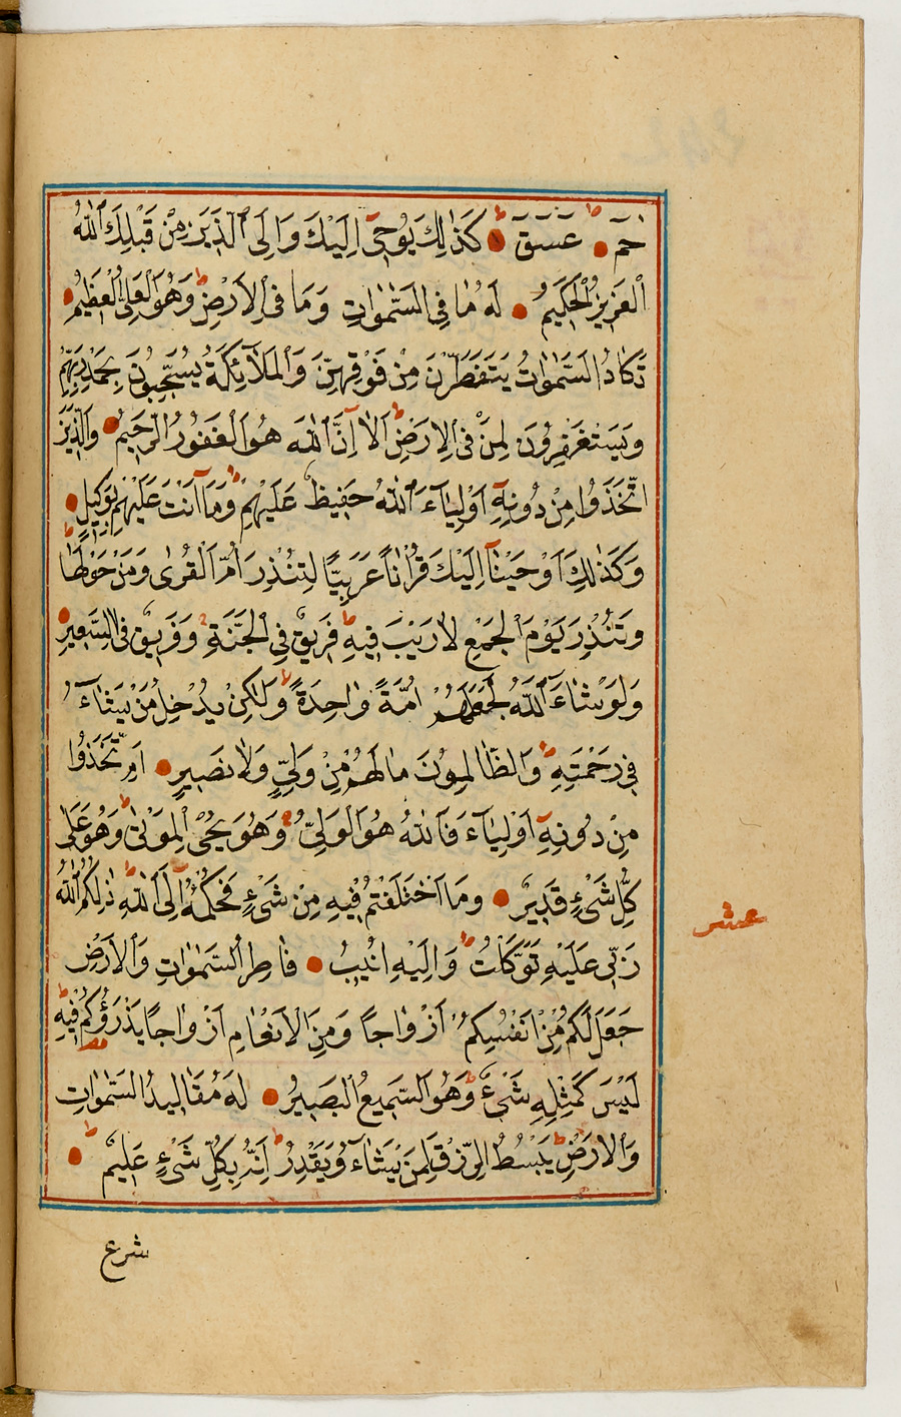 حٰمٓ عٓسٓقٓ كَذٰلِكَ يُوحٓى اِلَيْكَ وَاِلَى الَّذٖينَ مِنْ قَبْلِكَ اللّٰهُ
الْعَزٖيزُ الْحَكٖيمُ لَهُ مَا فِى السَّمٰوَاتِ وَمَا فِى الْاَرْضِ وَهُوَ الْعَلِىُّ الْعَظٖيمُ
تَكَادُ السَّمٰوَاتُ يَتَفَطَّرْنَ مِنْ فَوْقِهِنَّ وَالْمَلٰٓئِكَةُ يُسَبِّحُونَ بِحَمْدِ رَبِّهِمْ
وَيَسْتَغْفِرُونَ لِمَنْ فِى الْاَرْضِ اَلَٓا اِنَّ اللّٰهَ هُوَ الْغَفُورُ الرَّحٖيمُ وَالَّذٖينَ
اتَّخَذُوا مِنْ دُونِهٖٓ اَوْلِيَٓاءَ اللّٰهُ حَفٖيظٌ عَلَيْهِمْ وَمَٓا اَنْتَ عَلَيْهِمْ بِوَكٖيلٍ
وَكَذٰلِكَ اَوْحَيْنَٓا اِلَيْكَ قُرْاٰنًا عَرَبِيًّا لِتُنْذِرَ اُمَّ الْقُرٰى وَمَنْ حَوْلَهَا
وَتُنْذِرَ يَوْمَ الْجَمْعِ لَا رَيْبَ فٖيهِ فَرٖيقٌ فِى الْجَنَّةِ وَفَرٖيقٌ فِى السَّعٖيرِ
وَلَوْ شَٓاءَ اللّٰهُ لَجَعَلَهُمْ اُمَّةً وَاحِدَةً وَلٰكِنْ يُدْخِلُ مَنْ يَشَٓاءُ
فٖى رَحْمَتِهٖ وَالظَّالِمُونَ مَا لَهُمْ مِنْ وَلِىٍّ وَلَا نَصٖيرٍ اَمِ اتَّخَذُوا
مِنْ دُونِهٖٓ اَوْلِيَٓاءَ فَاللّٰهُ هُوَ الْوَلِىُّ وَهُوَ يُحْىِ الْمَوْتٰى وَهُوَ عَلٰى
كُلِّ شَىْءٍ قَدٖيرٌ وَمَا اخْتَلَفْتُمْ فٖيهِ مِنْ شَىْءٍ فَحُكْمُهُٓ اِلَى اللّٰهِ ذٰلِكُمُ اللّٰهُ
عشر
رَبّٖى عَلَيْهِ تَوَكَّلْتُ وَاِلَيْهِ اُنٖيبُ فَاطِرُ السَّمٰوَاتِ وَالْاَرْضِ
جَعَلَ لَكُمْ مِنْ اَنْفُسِكُمْ اَزْوَاجًا وَمِنَ الْاَنْعَامِ اَزْوَاجًا يَذْرَؤُكُمْ فٖيهِ
لَيْسَ كَمِثْلِهٖ شَىْءٌ وَهُوَ السَّمٖيعُ الْبَصٖيرُ لَهُ مَقَالٖيدُ السَّمٰوَاتِ
وَالْاَرْضِ يَبْسُطُ الرِّزْقَ لِمَنْ يَشَٓاءُ وَيَقْدِرُ اِنَّهُ بِكُلِّ شَىْءٍ عَلٖيمٌ
شرع